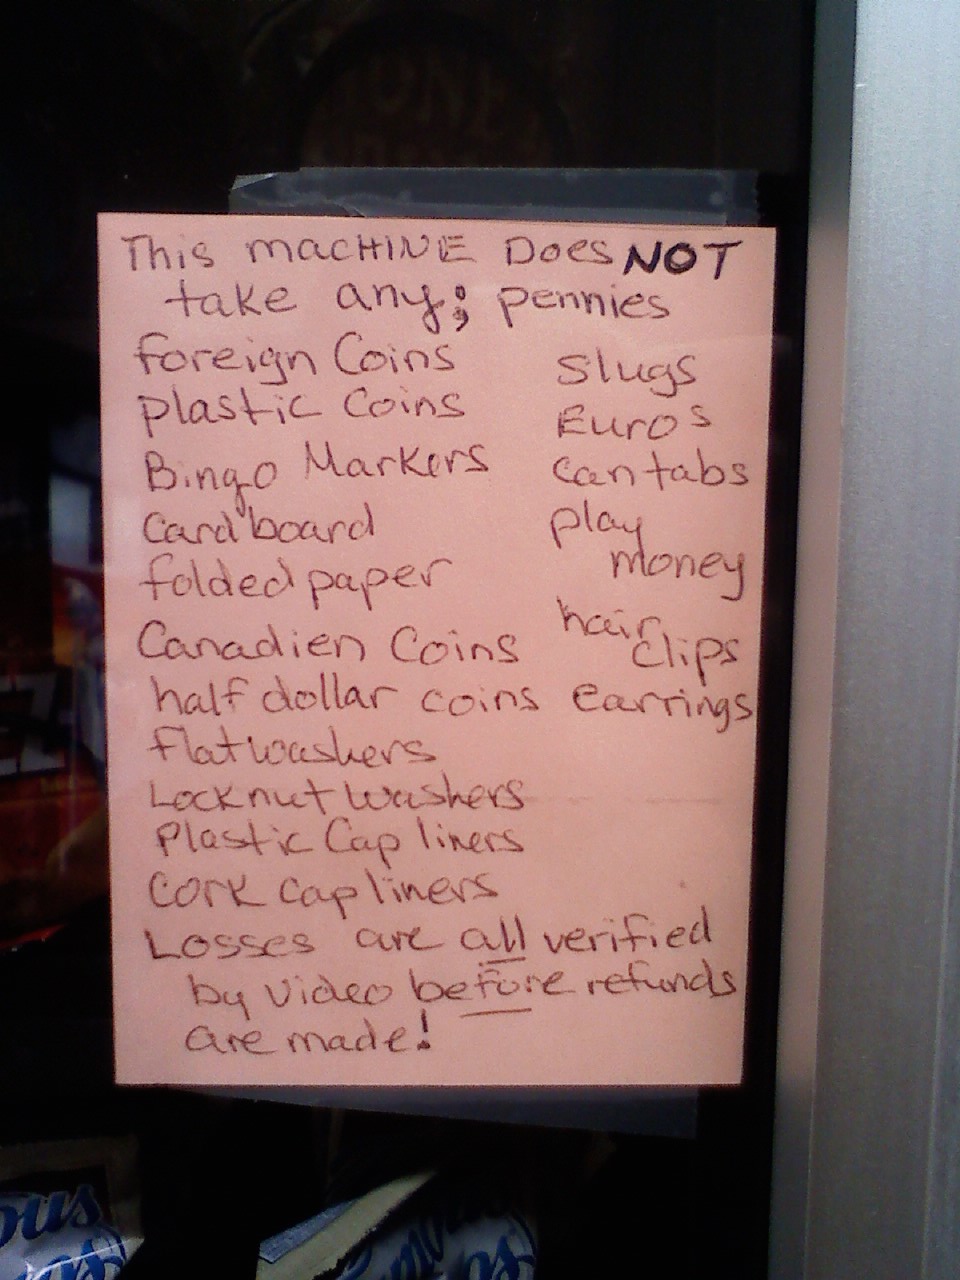 This MACHINE Does NOT
take any; pennies
foreign Coins
plastic Coins
Bingo Markers
Cardboard
folded paper
Canadien Coins
half dollar coins
flat washers
Locknut washers
Plastic Cap liners
Cork cap liners
Slugs
Euros
Can tabs
play
money
hair
clips
earrings
Losses are all verified
by video before refunds
are made!